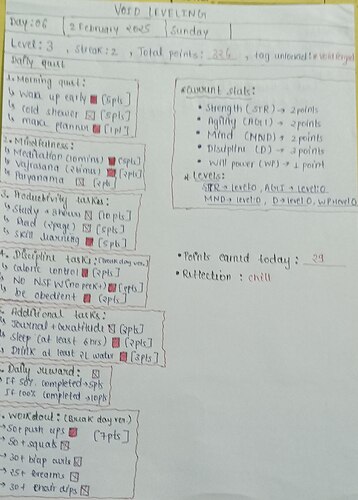 VOID LEVELING
Day: 06 2 February 2025 Sunday
Level: 3, Streak: 2, Total points: 226, tag unlocked:
Daily quest
1. Morning quest:
↳ Wake up early [5pts]
↳ cold shower [5pts]
↳ make planner [1pt]
2. Mindfulness:
↳ Meditation (10mins) [5pts]
↳ Vajrasana (2mins) [2pts]
↳ Paryanama [2pts]
3. Productivity tasks:
↳ Study [10pts]
↳ Read (2page) [5pts]
↳ Skill learning [5pts]
4. Discipline tasks: (Break day ver.)
↳ caloric control [2pts]
↳ NO NSFW (no peek)
↳ be obedient [2pts]
5. Additional tasks:
↳ Journal + Gratitude [3pts]
↳ Sleep (at least 6hrs) [2pts]
↳ Drink at least 2L water [3pts]
6. Daily reward:
If 50% completed → 5pts
If 100% completed → 10pts
7. Workout: (Break day ver.)
→ 50+ push ups [7pts]
→ 50+ squats
→ 30+ bicep curls
→ 25+ forearms
→ 30+ chair dips
Current stats:
• Strength (STR) → 2 points
• Agility (AGI) → 2 points
• Mind (MND) → 2 points
• Discipline (D) → 3 points
• Will power (WP) → 1 point
Levels:
STR → level 0, AGI → level: 0
MND → level: 0, D → level 0, WP: level 0
• Points earned today: 29
• Reflection: chill